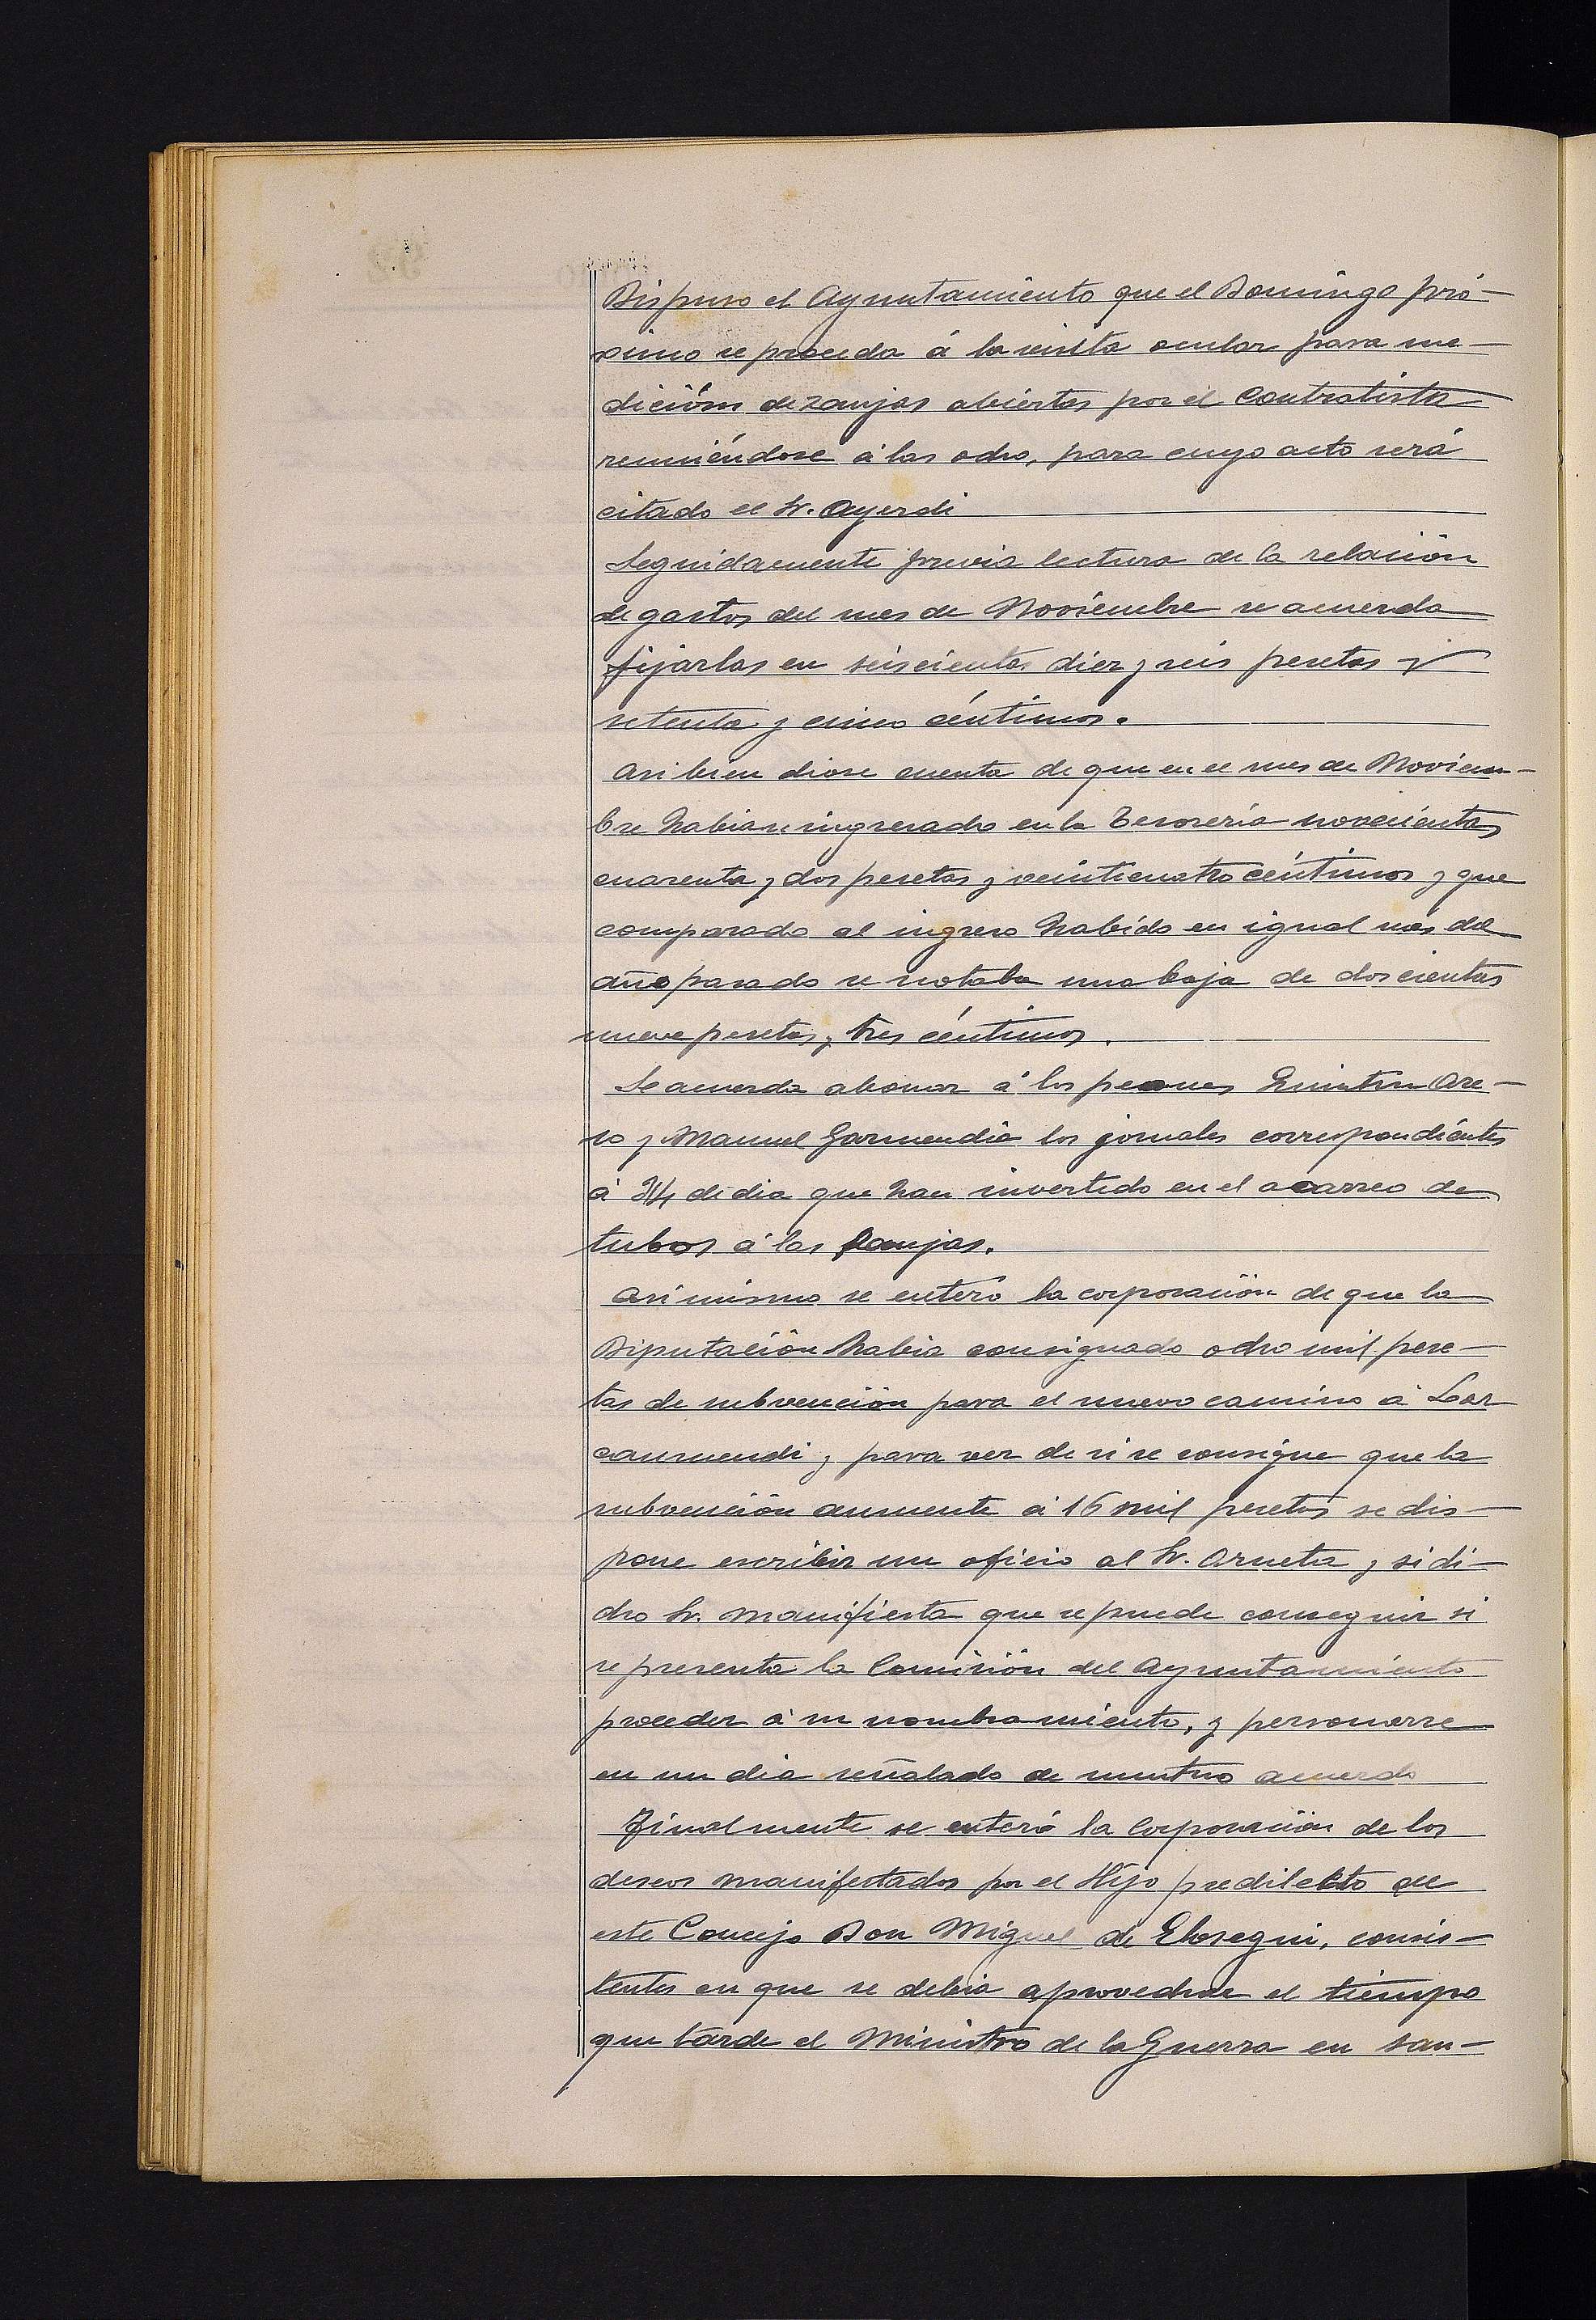 Dispuso el Ayuntamiento que el Domingo pró-
ximo se proceda á la visita ocular para me-
dición de zanjas abiertas por el Contratista
reuniéndose á las ocho, para cuyo acto será
citado el Sr. Ayerdi
Seguidamente previa lectura de la relación
de gastos del mes de Noviembre se acuerda
fijarlas en seiscientas diez y seis pesetas y
setenta y cinco céntimos.
Asi bien diose cuenta de que en el mes de Noviem-
bre habianse ingresado en la Tesorería novecientas
cuarenta y dos pesetas y veinticuatro céntimos y que
comparado al ingreso habido en igual mes del
año pasado se notaba una baja de doscientas
nueve pesetas y tres céntimos.
Se acuerda abonar á los peones Quintin Ore-
 y Manuel Garmendia los jornales correspondientes
á 3/4 de dia que han invertido en el acarreo de
tubos á las zanjas.
Asimismo se enteró la corporación de que la
Diputación habia consignado ocho mil pese-
tas de subvención para el nuevo camino á Loat
caumendi y para ver de si se consigue que la
subvención aumente á 16 mil pesetas se dis-
pone escribir un oficio al Sr. Orueta y si di-
cho Sr. manifiesta que se puede conseguir si
se presenta la Comisión del Ayuntamiento
proceder á su nombramiento, y personarse
en un dia señalado de nuestro acuerdo
Finalmente se enteró la Corporación de los
deseos manifestados por el Hijo predilecto de
este Concejo Don Miguel de Elosegui, consis-
tentes en que se debia aprovechar el tiempo
que tarde el Ministro de la Guerra en san-